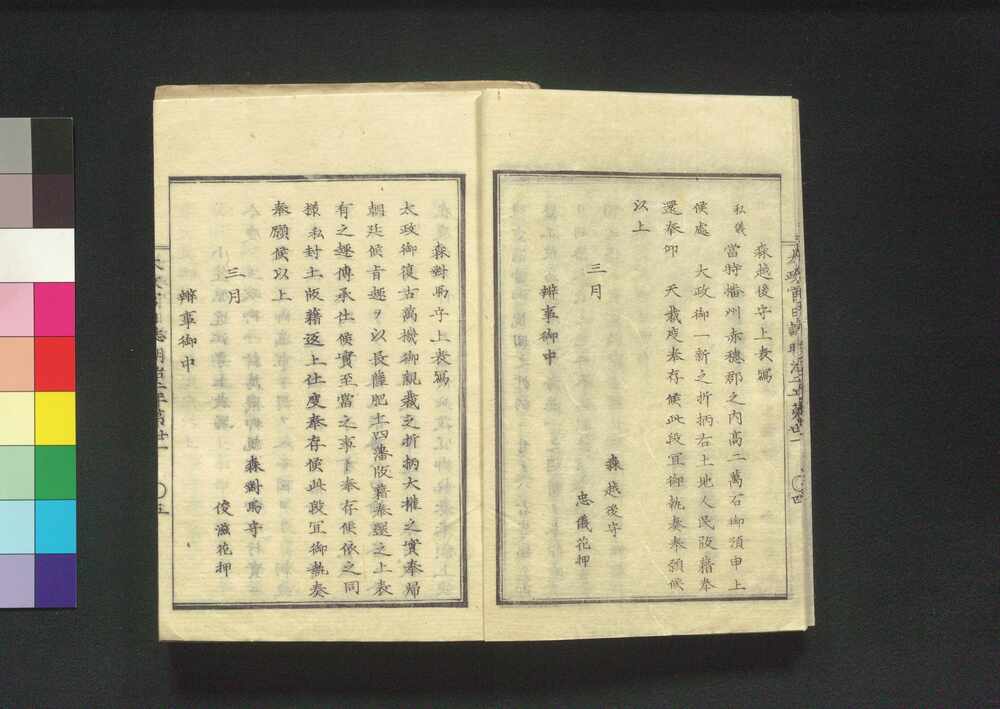 森越後守上表寫
私儀
當時播州赤穗郡之内高二萬石御預申上
候處　大政御一新之折柄右土地人民版籍奉
還奉仰　天裁度奉存候此段宜御執奏奉願候
以上
三月
森越後守
忠儀花押
辨事御中
太政官日誌明治二年第廿一
〇四
森對馬守上表寫
太政御復古萬機御親裁之折柄大權之實奉歸
朝廷候旨趣ヲ以長薩肥土四藩版籍奉還之上表
有之趣傳承仕候實至當之事ト奉存候依之同
樣私封土版籍返上仕度奉存候此段宜御執奏
奉願候以上
三月
森對馬守
俊滋花押
辨事御中
太政官日誌明治二年第廿一
〇五